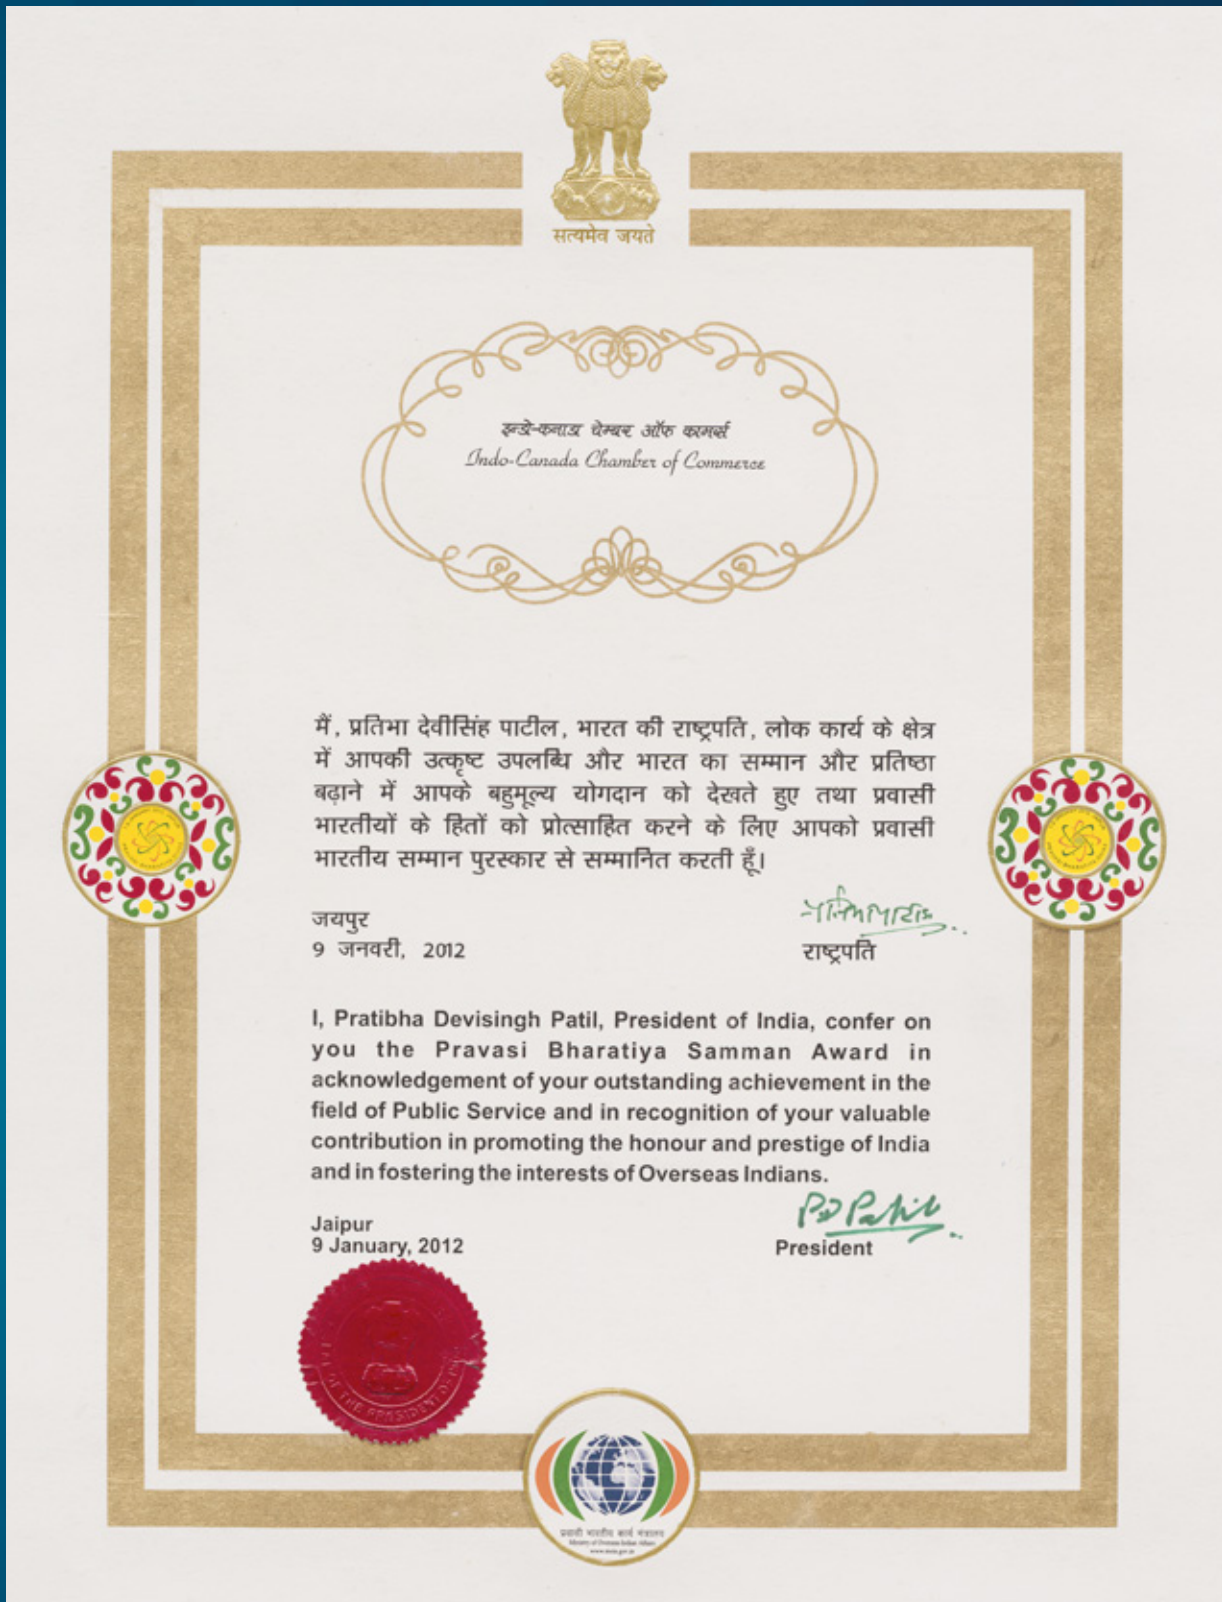 सत्यमेव जयते
इन्डो-कनाडा चेम्बर ऑफ कामर्स
Indo-Canada Chamber of Commerce
मैं, प्रतिभा देवीसिंह पाटील, भारत की राष्ट्रपति, लोक कार्य के क्षेत्र
में आपकी उत्कृष्ट उपलब्धि और भारत का सम्मान और प्रतिष्ठा
बढ़ाने में आपके बहुमूल्य योगदान को देखते हुए तथा प्रवासी
भारतीयों के हितों को प्रोत्साहित करने के लिए आपको प्रवासी
भारतीय सम्मान पुरस्कार से सम्मानित करती हूँ।
जयपुर
9 जनवरी, 2012
राष्ट्रपति
I, Pratibha Devisingh Patil, President of India, confer on
you the Pravasi Bharatiya Samman Award in
acknowledgement of your outstanding achievement in the
field of Public Service and in recognition of your valuable
contribution in promoting the honour and prestige of India
and in fostering the interests of Overseas Indians.
Jaipur
9 January, 2012
PD Patil
President
OF THE PRESIDENT OF
प्रवासी भारतीय कार्य मंत्रालय
Ministry of Overseas Indian Affairs